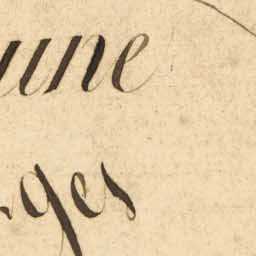 une
ges